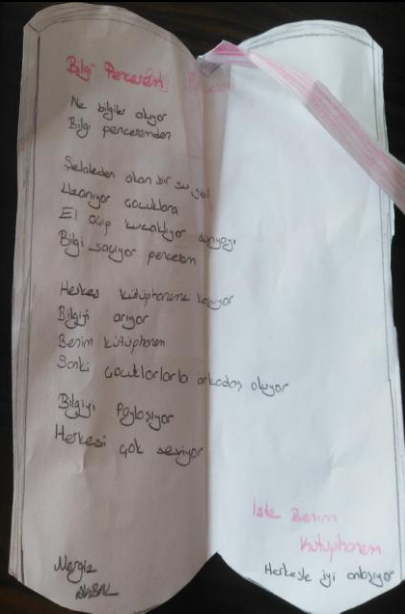 Bilgi Pencerem
Ne bilgiler akıyor
Bilgi penceremden
Şelaleden akan bir su gibi
Uzanıyor çocuklara
El açıp kucaklıyor dünyayı
Bilgi saçıyor pencerem
Herkes kütüphaneme koşuyor
Bilgiyi arıyor
Benim kütüphanem
Sanki çocuklarla arkadaş oluyor
Bilgiyi Paylaşıyor
Herkesi çok seviyor
Nergiz
İşte Benim
Kütüphanem
Herkesle iyi anlaşıyor